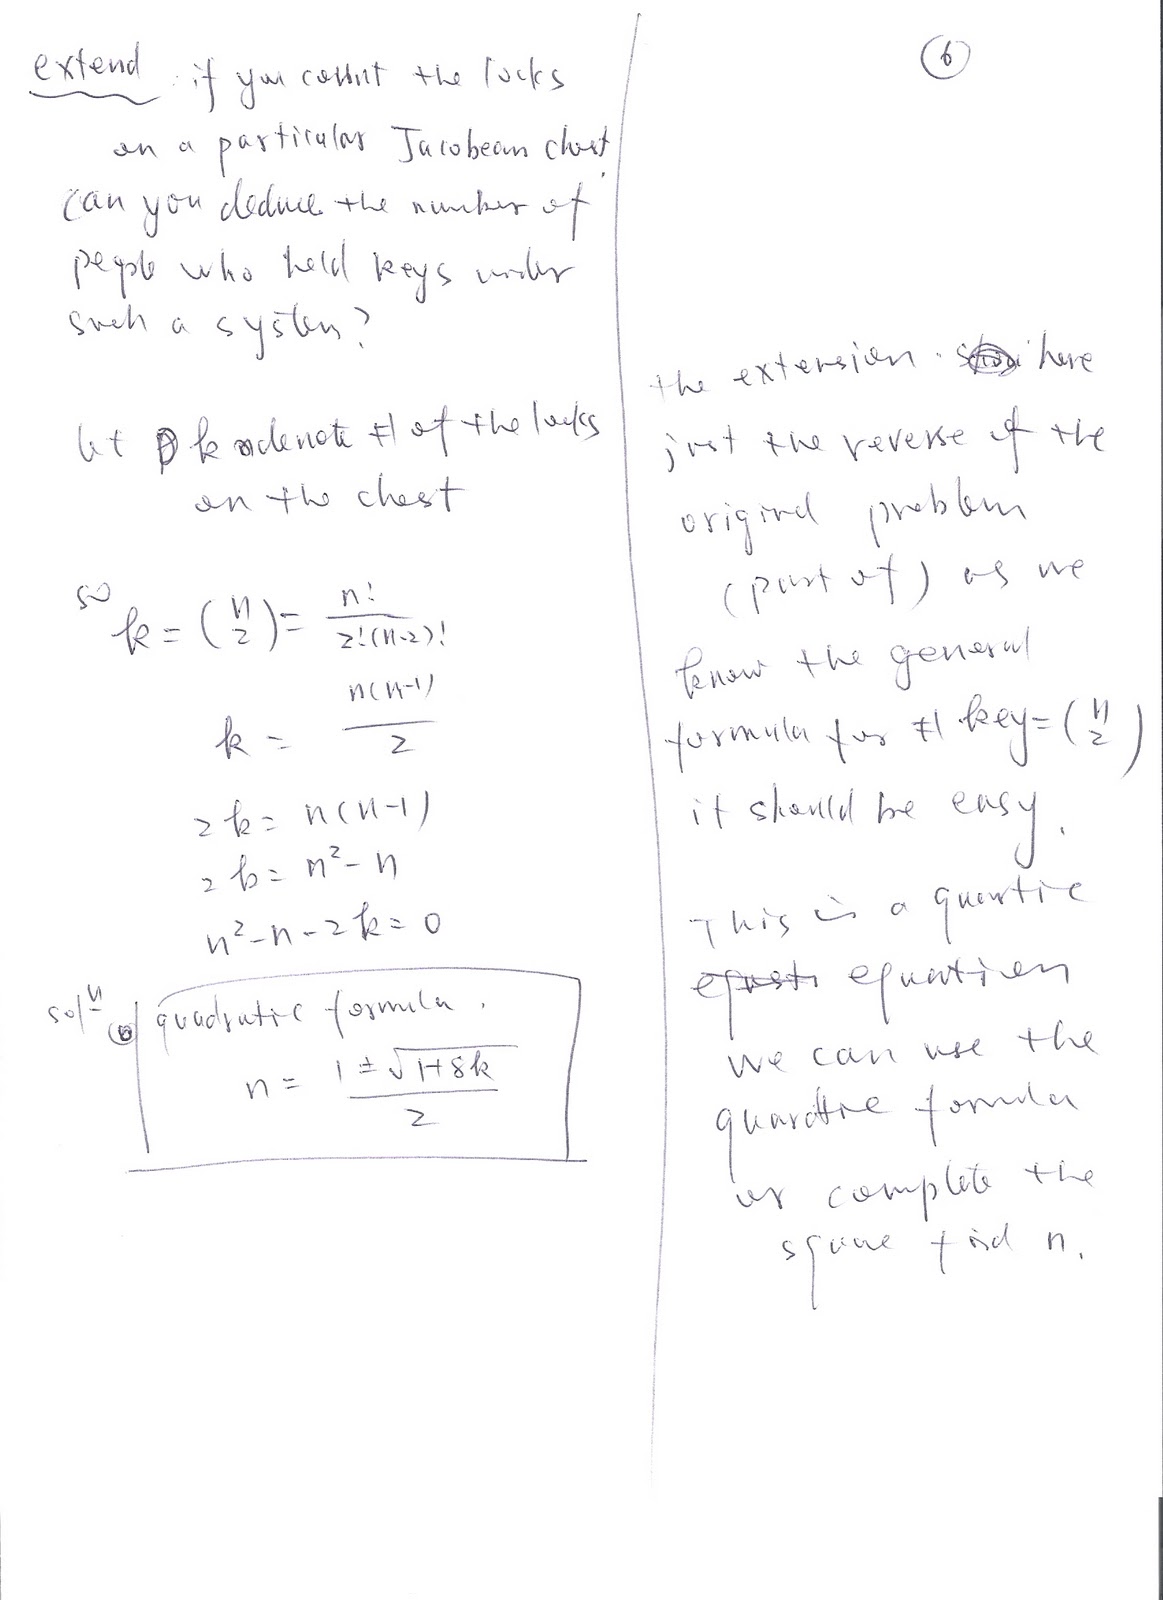 6
extend if you count the locks
on a particular Jacobean chest
can you deduce the number of
people who held keys under
such a system?
let k denote # of the locks
on the chest
so k = (n 2) = n! / 2!(n-2)!
k = n(n-1) / 2
2k = n(n-1)
2k = n² - n
n² - n - 2k = 0
solⁿ quadratic formula.
n = 1 ± √1+8k / 2
the extension here
just the reverse of the
original problem
(part of) as we
know the general
formula for # key = (n 2)
it should be easy.
This is a
equation
we can use the
formula
or complete the
square find n.